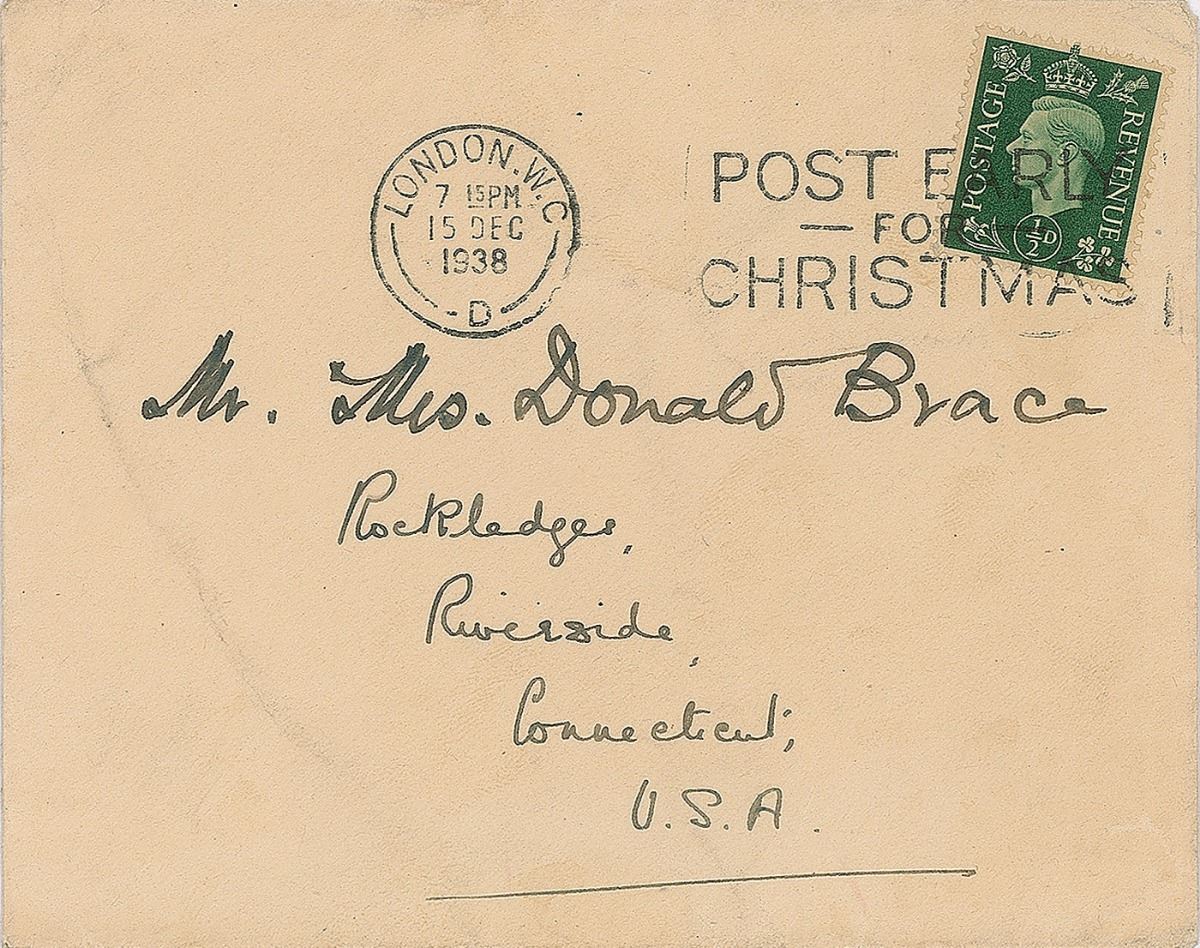 POSTAGE REVENUE
½D
LONDON.W.C
7 15PM
15 DEC
1938
- D -
POST EARLY
— FOR —
CHRISTMAS
Mr. Mrs. Donald Brace
Rockledges,
Riverside,
Connecticut,
U.S.A.